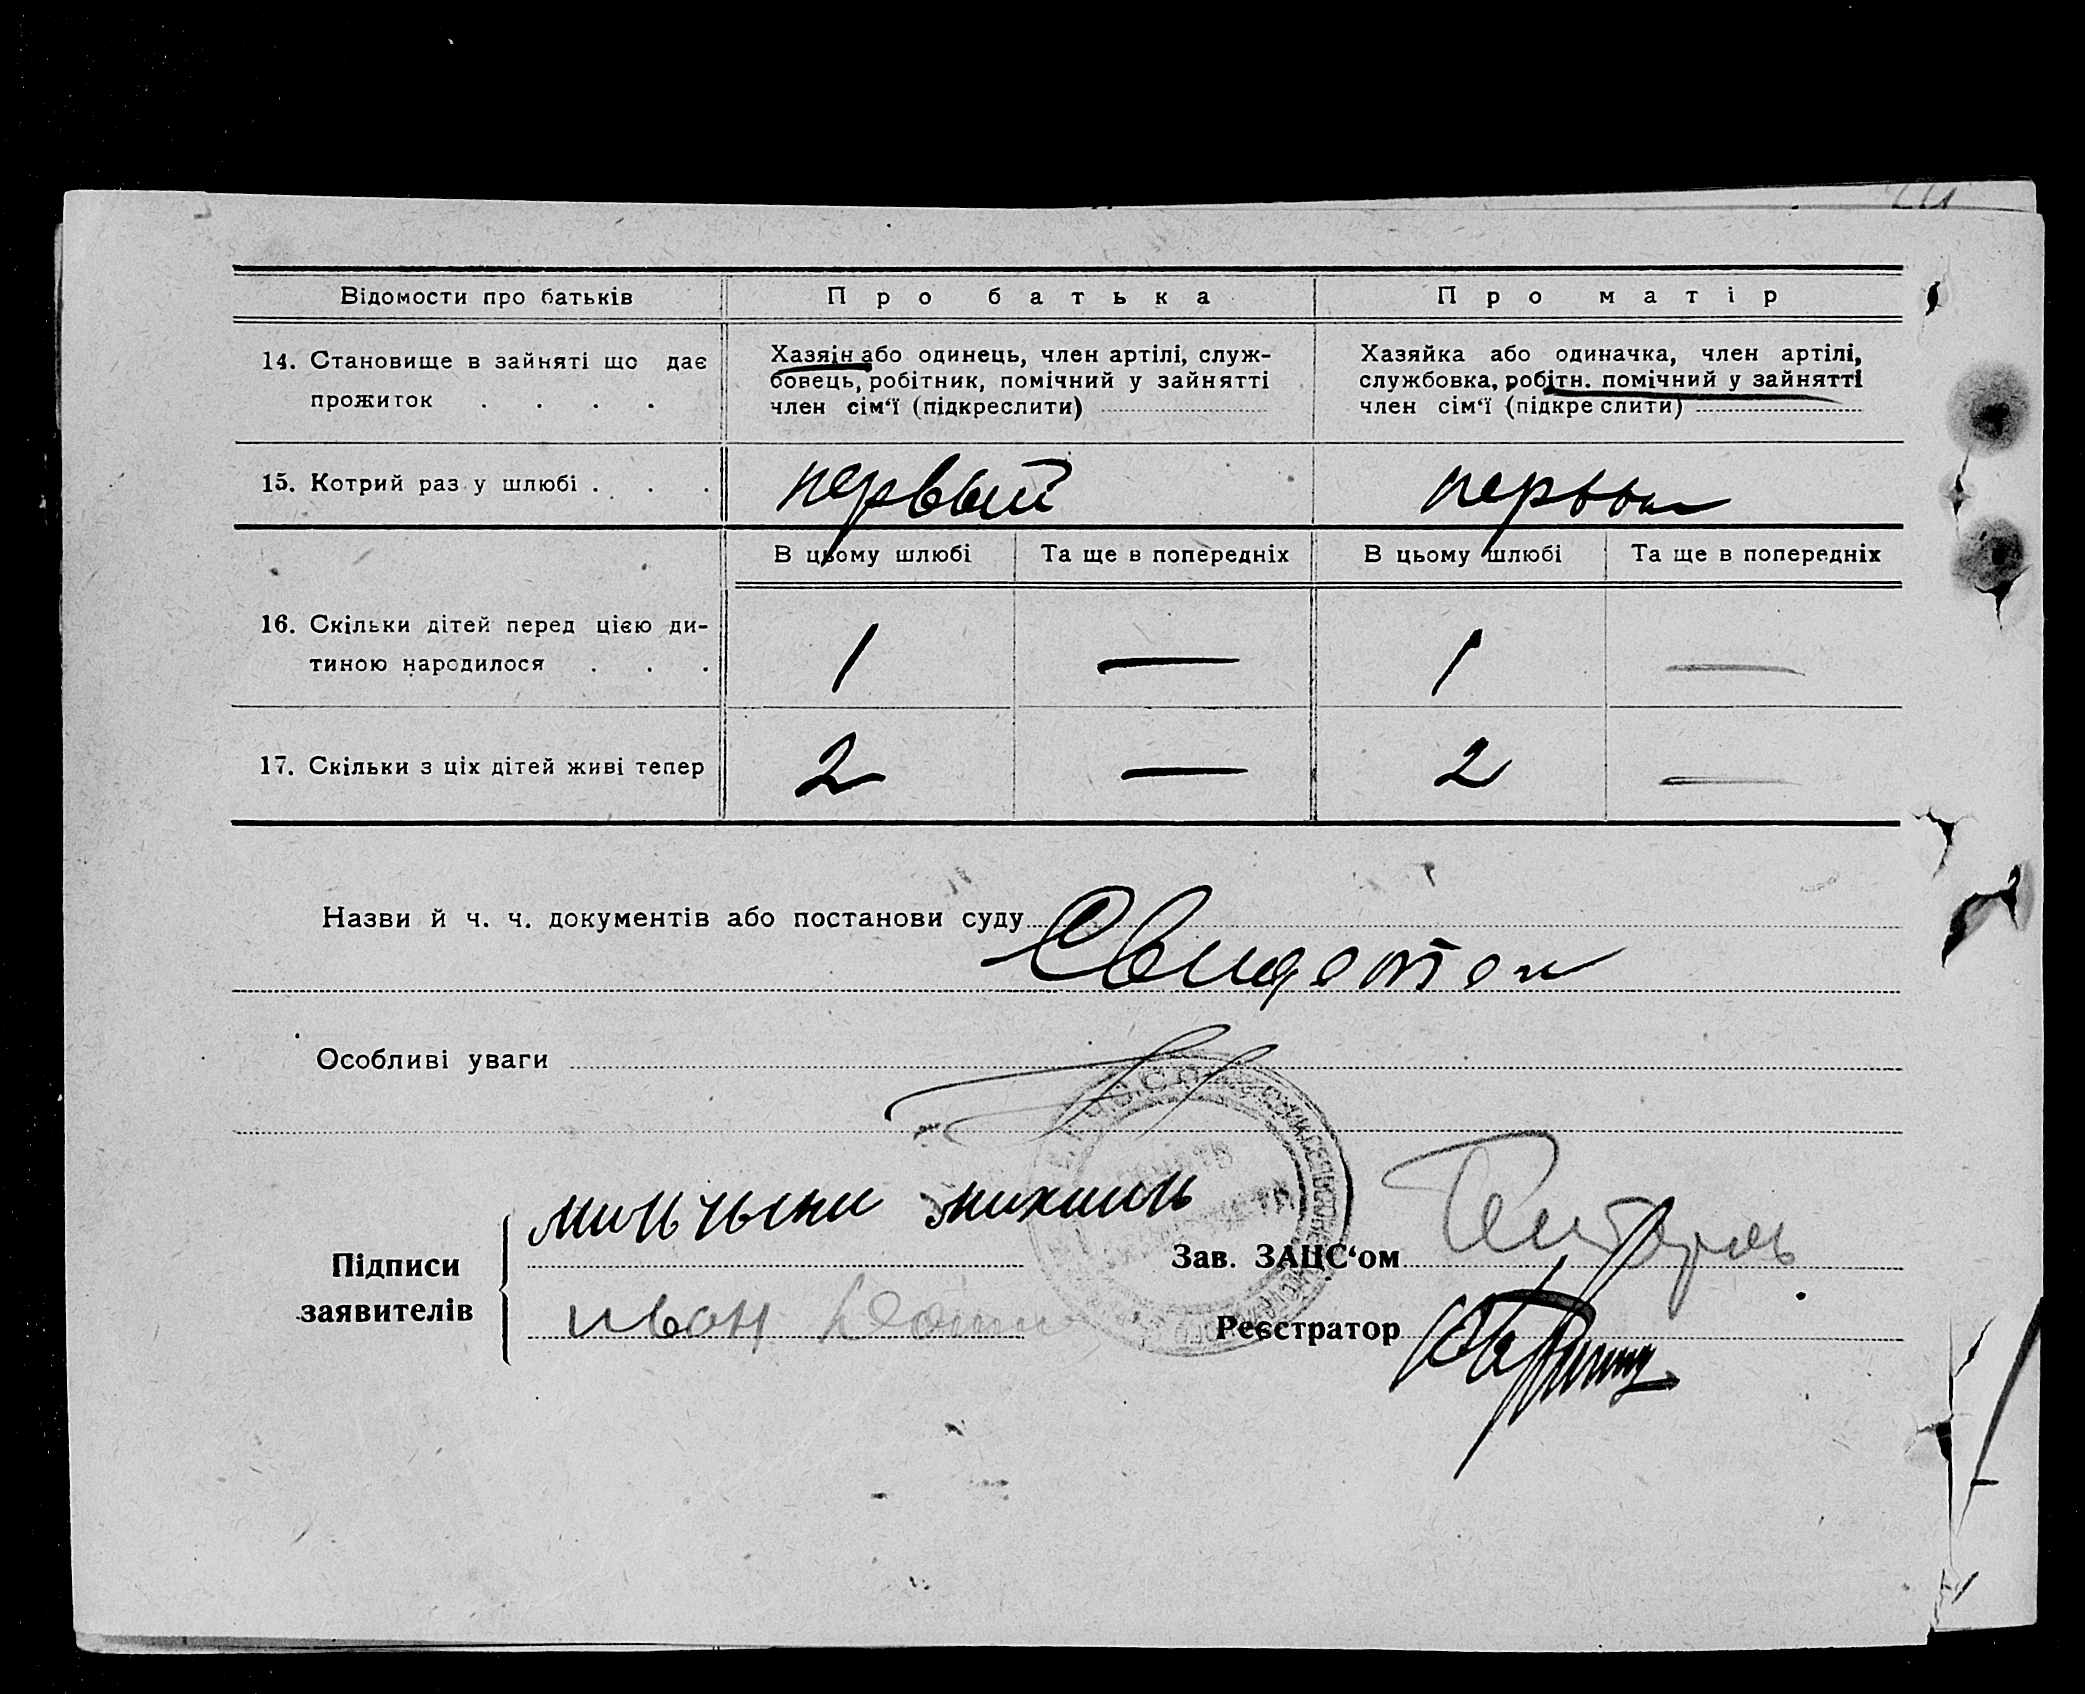 Відомости про батьків
Про батька
Про матір
14. Становище в зайняті що дає
прожиток . . . .
Хазяін або одинець, член артілі, служ-
бовець, робітник, помічний у зайнятті
член сім‘ї (підкреслити)
Хазяйка або одиначка, член артілі,
службовка, робітн. помічний у зайнятті
член сім‘ї (підкреслити)
15. Котрий раз у шлюбі . . .
первый
первый
В цьому шлюбі
Та ще в попередніх
В цьому шлюбі
Та ще в попередніх
16. Скільки дітей перед цією ди-
тиною народилося . . .
1
—
1
—
17. Скільки з ціх дітей живі тепер
2
—
2
—
Назви й ч. ч. документів або постанови суду
Особливі уваги
Підписи
заявителів
иван
Зав. ЗАЦС‘ом
Реєстратор